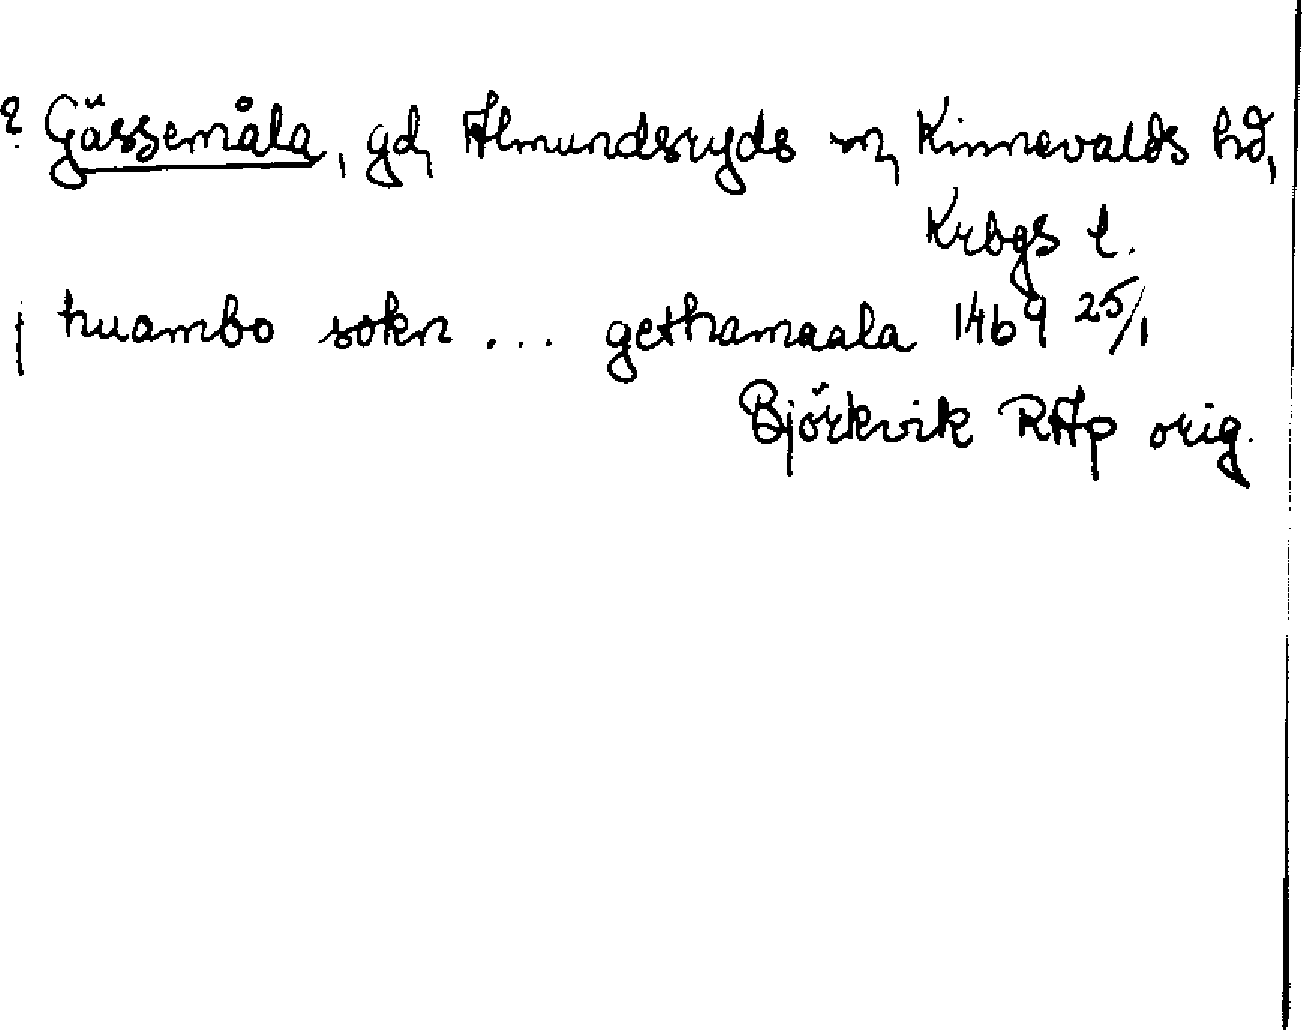 ? Gässemåla, gd, Almundsryds sn, Kinnevalds hd,
Krbgs l.
j huambo sokn ... gethamaala 1469 25/1
Björkvik RAp orig.